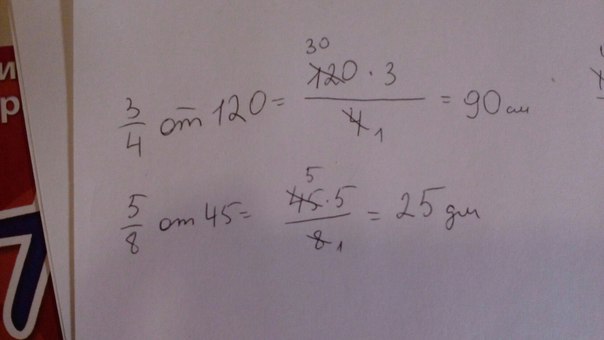 и
р
7
3/4 от 120 = (120 30 · 3)/(4 1) = 90 см
5/8 от 45 = (45 5 · 5)/(8 1) = 25 дм